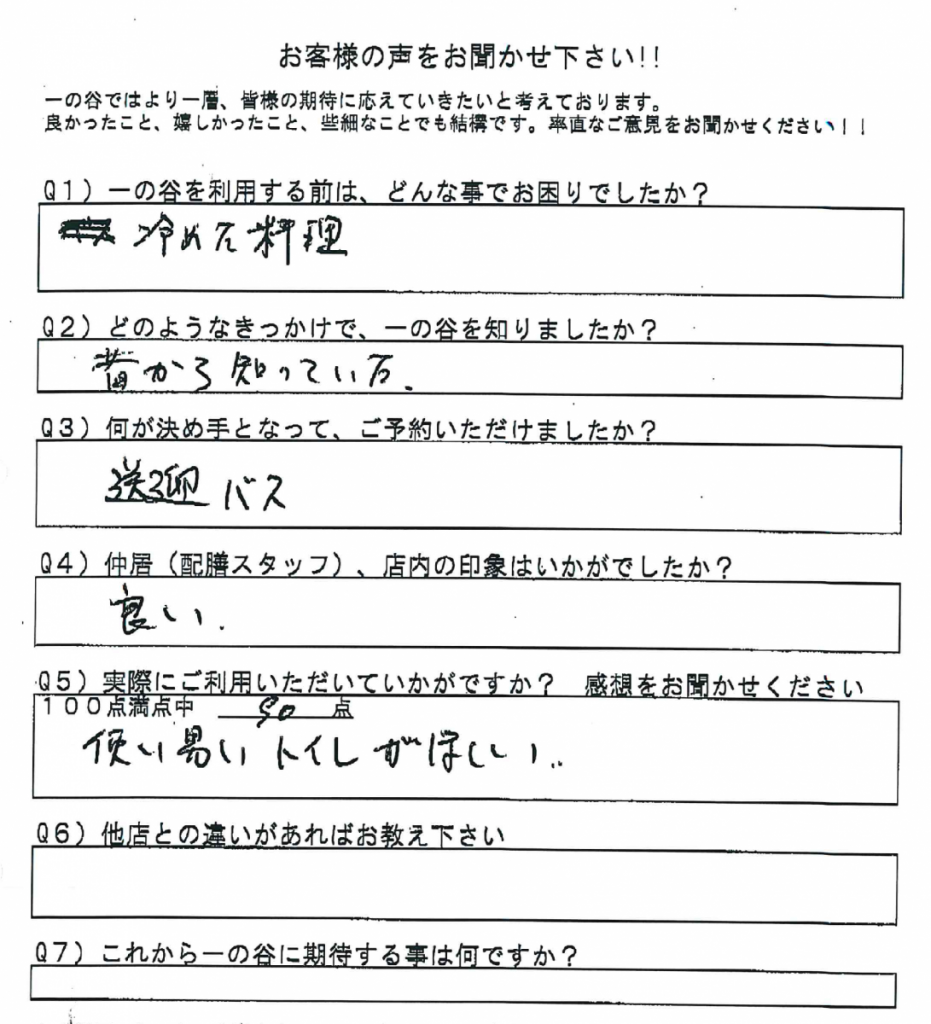 お客様の声をお聞かせ下さい!!
一の谷ではより一層、皆様の期待に応えていきたいと考えております。
良かったこと、嬉しかったこと、些細なことでも結構です。率直なご意見をお聞かせください!!
Q1）一の谷を利用する前は、どんな事でお困りでしたか？
冷めた料理
Q2）どのようなきっかけで、一の谷を知りましたか？
昔から知っていた.
Q3）何が決め手となって、ご予約いただけましたか？
送迎バス
Q4）仲居（配膳スタッフ）、店内の印象はいかがでしたか？
良い.
Q5）実際にご利用いただいていかがですか？　感想をお聞かせください
100点満点中　90　点
使い易いトイレがほしい..
Q6）他店との違いがあればお教え下さい
Q7）これから一の谷に期待する事は何ですか？